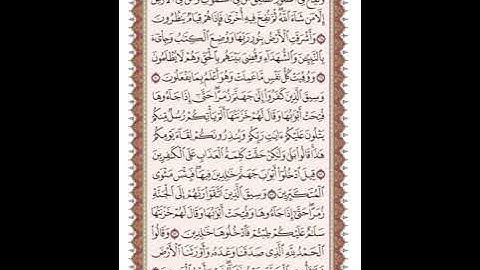 وَنُفِخَ فِي ٱلصُّورِ فَصَعِقَ مَن فِي ٱلسَّمَٰوَٰتِ وَمَن فِي ٱلْأَرْضِ
إِلَّا مَن شَآءَ ٱللَّهُ ثُمَّ نُفِخَ فِيهِ أُخْرَىٰ فَإِذَا هُمْ قِيَامٌ يَنظُرُونَ
وَأَشْرَقَتِ ٱلْأَرْضُ بِنُورِ رَبِّهَا وَوُضِعَ ٱلْكِتَٰبُ وَجِا۟يٓءَ
بِٱلنَّبِيِّـۧنَ وَٱلشُّهَدَآءِ وَقُضِيَ بَيْنَهُم بِٱلْحَقِّ وَهُمْ لَا يُظْلَمُونَ
وَوُفِّيَتْ كُلُّ نَفْسٍ مَّا عَمِلَتْ وَهُوَ أَعْلَمُ بِمَا يَفْعَلُونَ
وَسِيقَ ٱلَّذِينَ كَفَرُوٓا۟ إِلَىٰ جَهَنَّمَ زُمَرًا حَتَّىٰٓ إِذَا جَآءُوهَا
فُتِحَتْ أَبْوَٰبُهَا وَقَالَ لَهُمْ خَزَنَتُهَآ أَلَمْ يَأْتِكُمْ رُسُلٌ مِّنكُمْ
يَتْلُونَ عَلَيْكُمْ ءَايَٰتِ رَبِّكُمْ وَيُنذِرُونَكُمْ لِقَآءَ يَوْمِكُمْ
هَٰذَا قَالُوا۟ بَلَىٰ وَلَٰكِنْ حَقَّتْ كَلِمَةُ ٱلْعَذَابِ عَلَى ٱلْكَٰفِرِينَ
قِيلَ ٱدْخُلُوٓا۟ أَبْوَٰبَ جَهَنَّمَ خَٰلِدِينَ فِيهَا فَبِئْسَ مَثْوَى
ٱلْمُتَكَبِّرِينَ وَسِيقَ ٱلَّذِينَ ٱتَّقَوْا۟ رَبَّهُمْ إِلَى ٱلْجَنَّةِ
زُمَرًا حَتَّىٰٓ إِذَا جَآءُوهَا وَفُتِحَتْ أَبْوَٰبُهَا وَقَالَ لَهُمْ خَزَنَتُهَا
سَلَٰمٌ عَلَيْكُمْ طِبْتُمْ فَٱدْخُلُوهَا خَٰلِدِينَ وَقَالُوا۟
ٱلْحَمْدُ لِلَّهِ ٱلَّذِي صَدَقَنَا وَعْدَهُۥ وَأَوْرَثَنَا ٱلْأَرْضَ